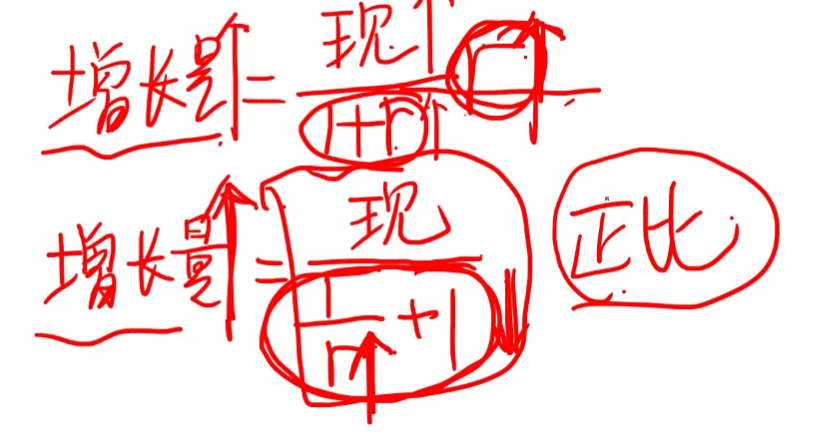 增长量↑=现↑/(1+r)↑ · r↑
增长量↑=现/(1/r↑+1)↓
正比